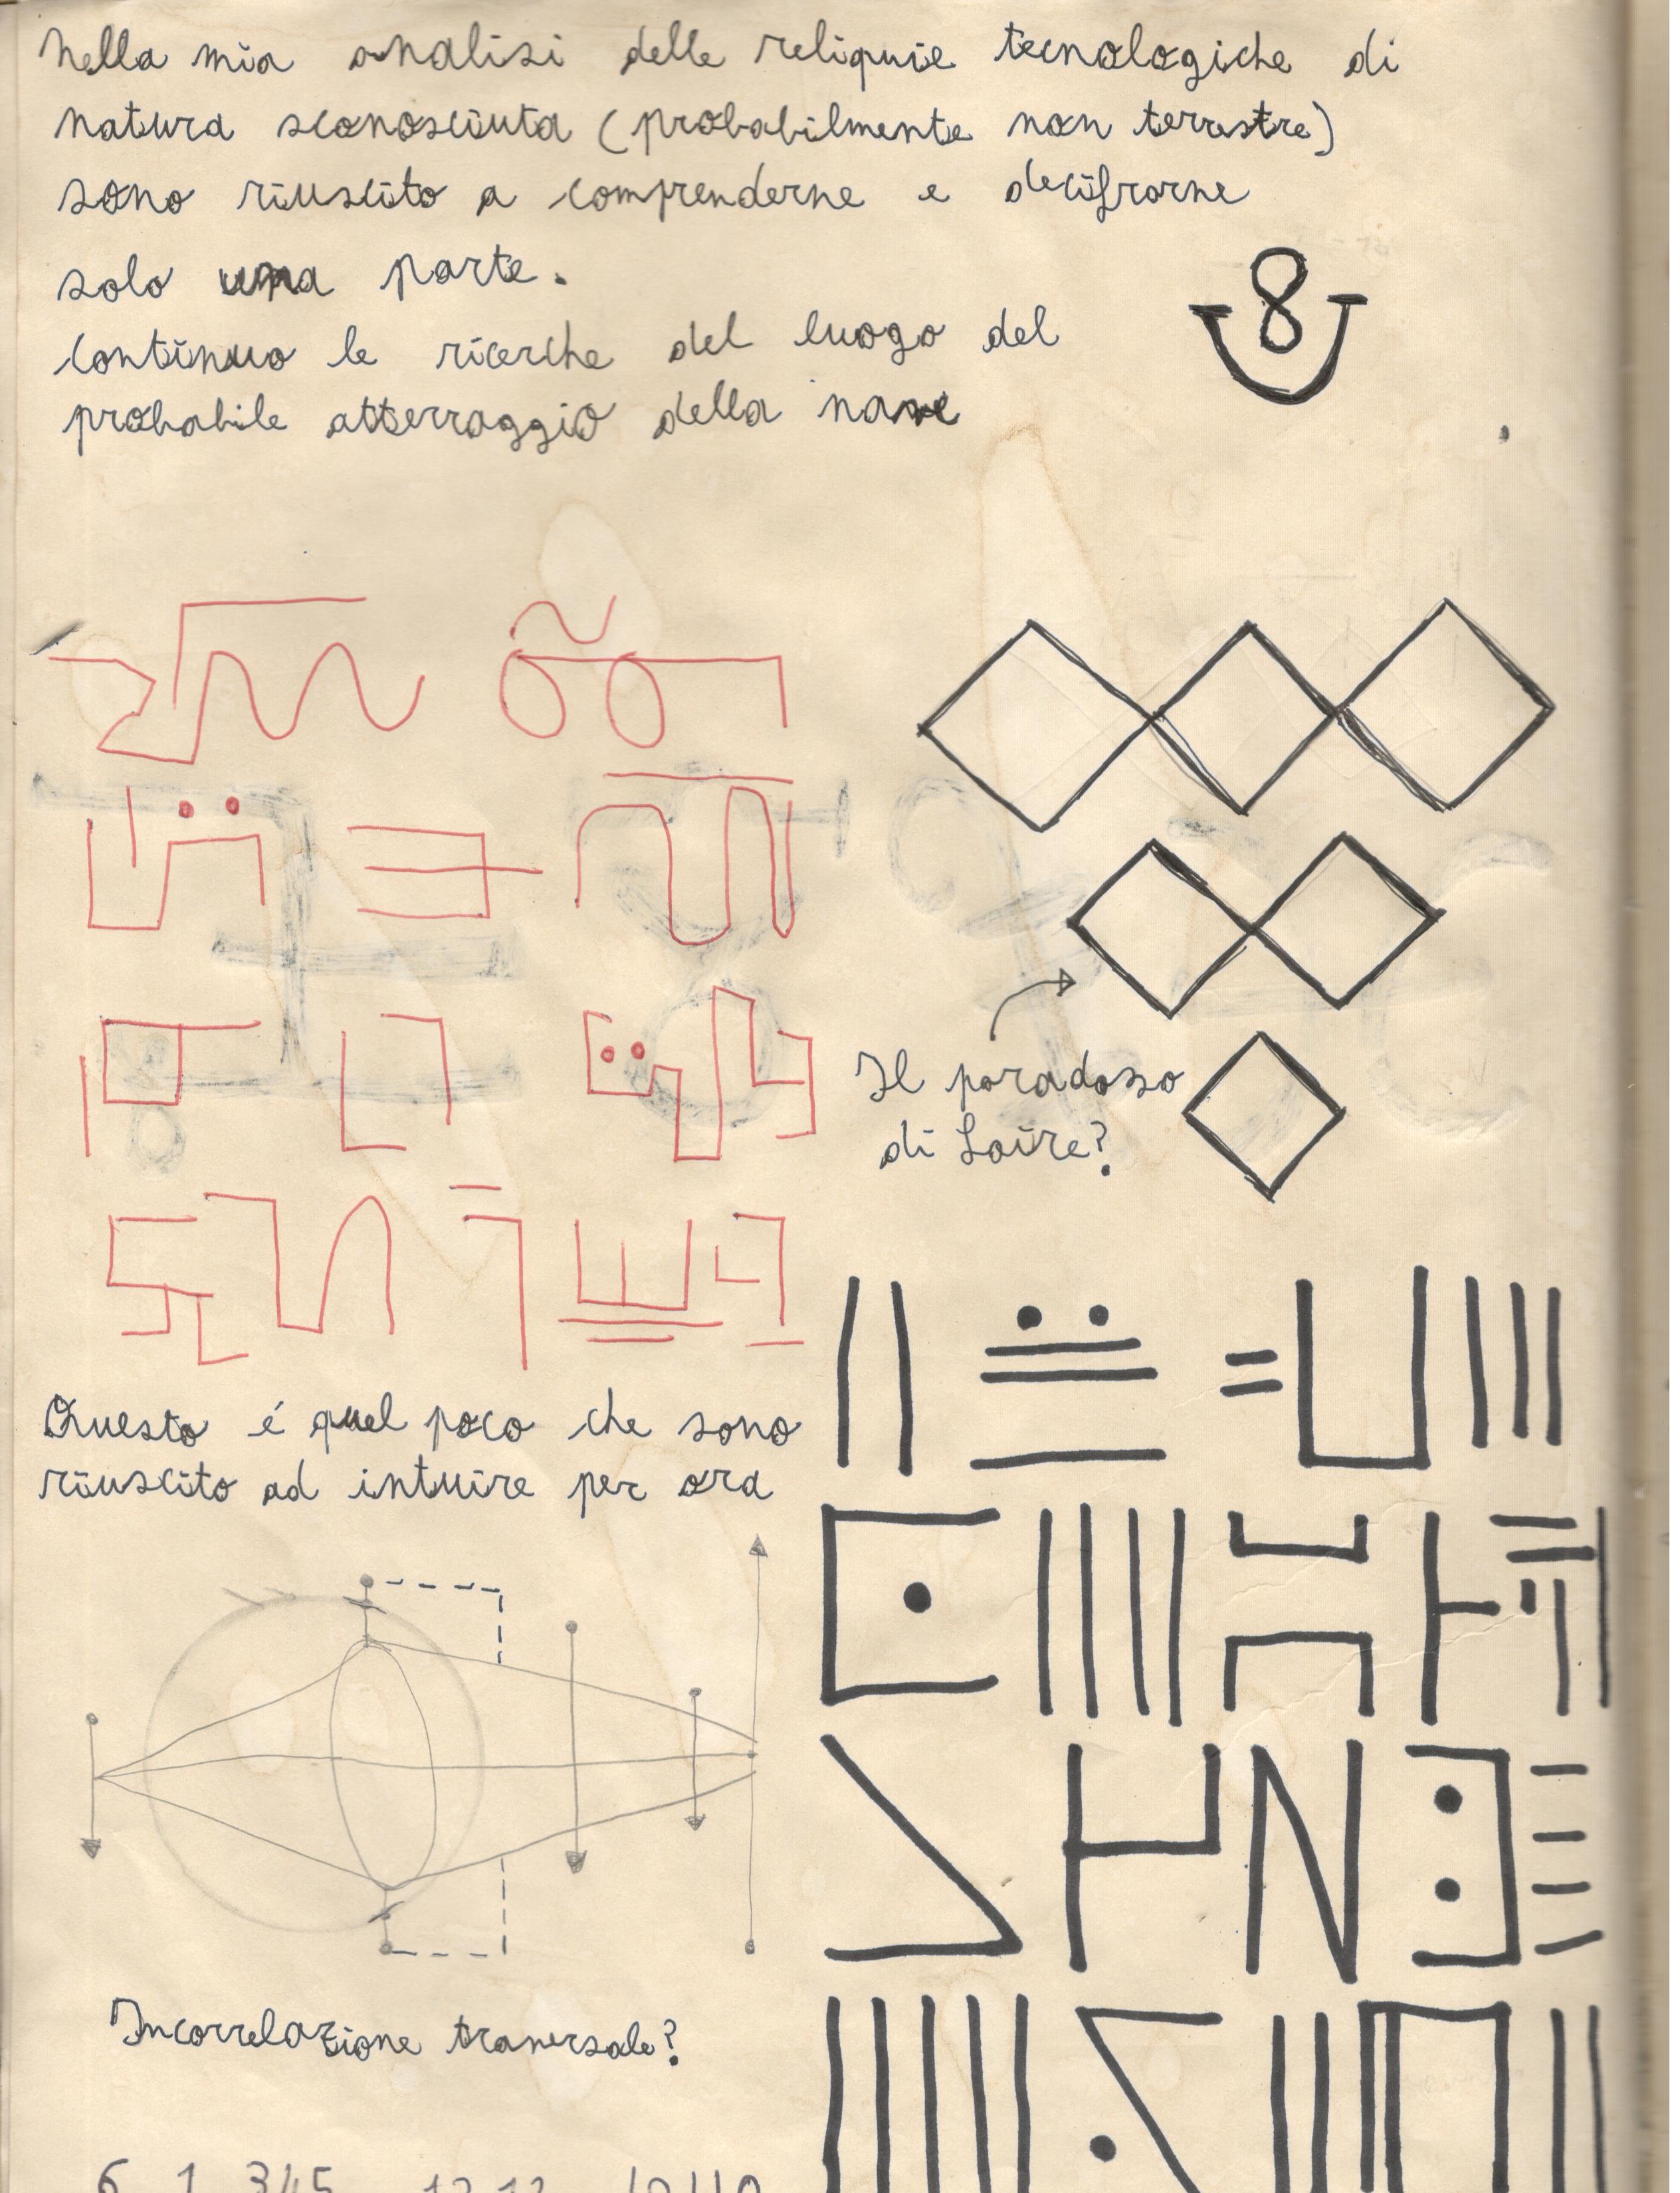 Nella mia analisi delle reliquie tecnologiche di
natura sconosciuta (probabilmente non terrestre)
sono riuscito a comprenderne e decifrarne
solo una parte.
continuo le ricerche del luogo del
probabile atterraggio della nave
8
Il paradosso
di Loire?
Questo é quel poco che sono
riuscito ad intuire per ora
Incorrelazione traversale?
6 1 345